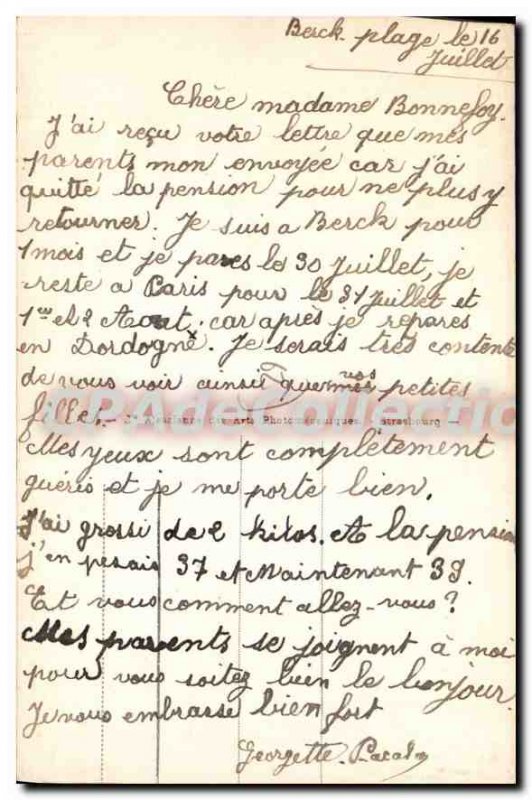 Berck plage le 16
Juillet
Chère madame Bonnefoy.
J'ai reçu votre lettre que mes
parents mon envoyée car j'ai
quitté la pension pour ne plus y
retourner. Je suis a Berck pour
1 mois et je pares le 30 Juillet, je
reste a Paris pour le 31 Juillet et
1er et 2 Aout, car après je repares
en Dordogne. Je serais très contente
de vous voir ainsi que vos petites
filles.
Cie Alsacienne des Arts Photomécaniques, Strasbourg —
APADeCollection
Mes yeux sont complètement
guéris et je me porte bien.
J'ai grossi de 2 kilos. A la pension
j'en pesais 37 et Maintenant 39.
Et vous comment allez-vous?
Mes parents se joignent à moi
pour vous soitez bien le bonjour.
Je vous embrasse bien fort
Georgette.